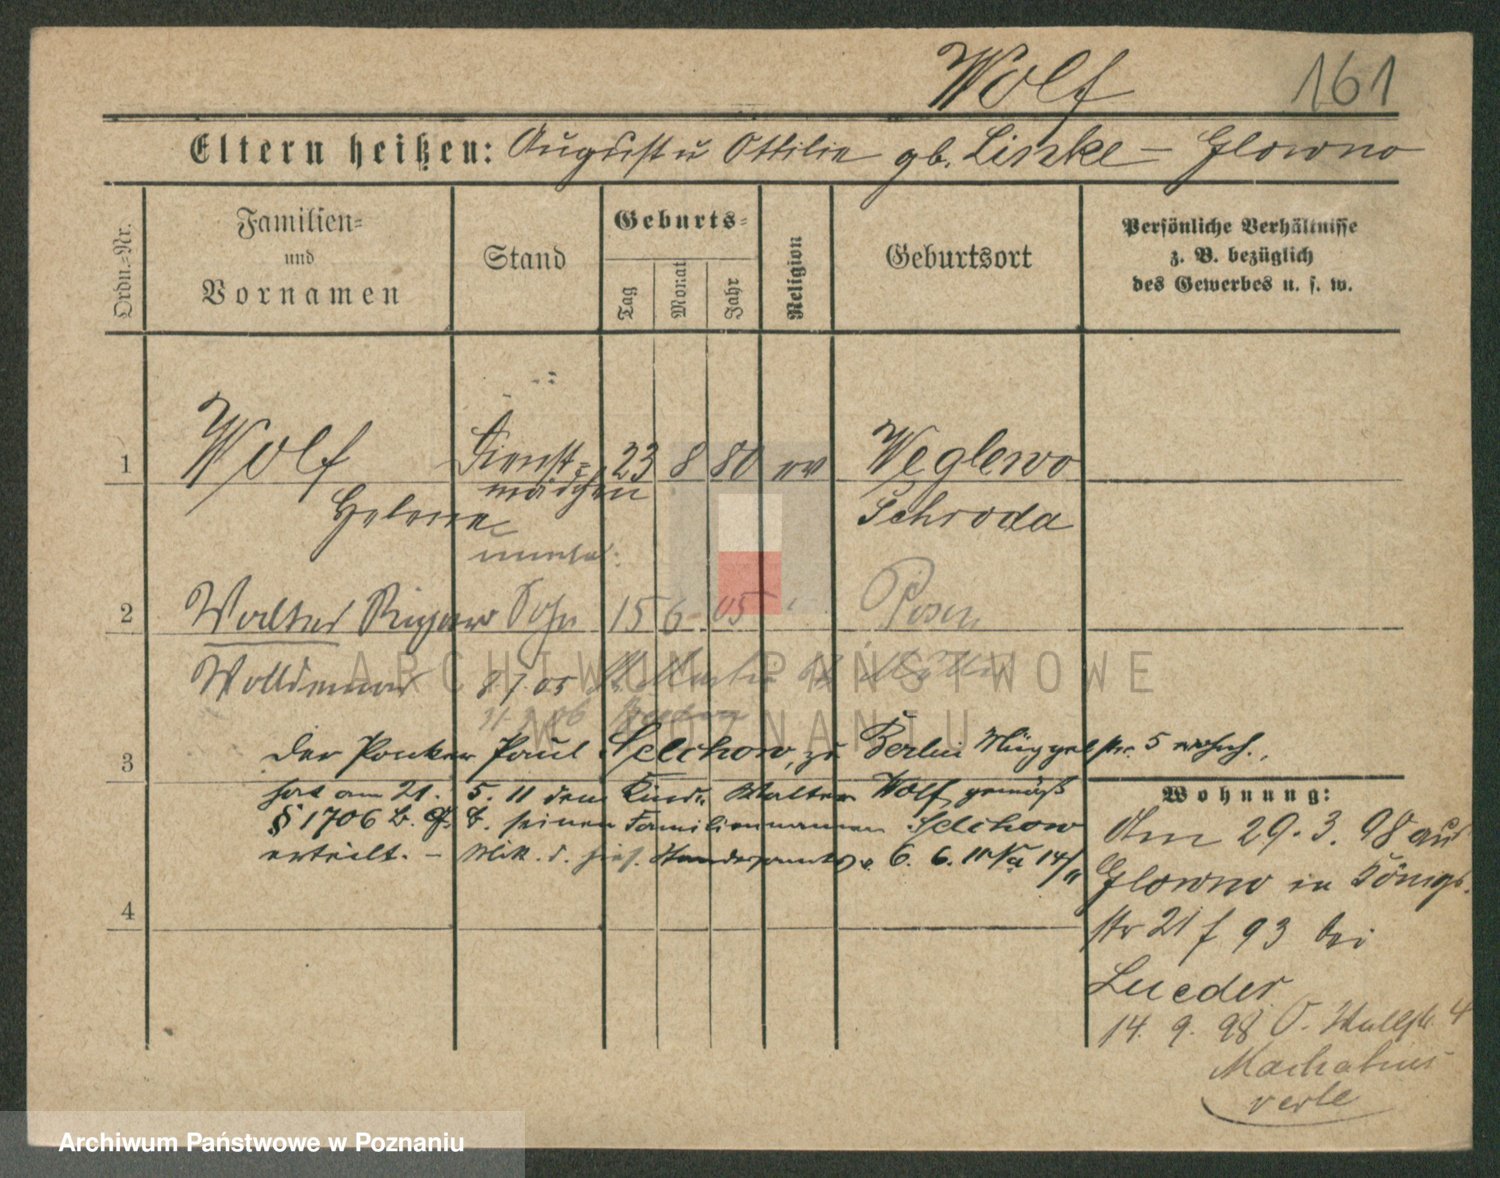 Wolf 161
Eltern heißen: August u Ottilie gb. Linke – Glowno
Ordn.-Nr.
Familien-
und
Vornamen
Stand
Geburts-
Tag
Monat
Jahr
Religion
Geburtsort
Persönliche Verhältnisse
z. B. bezüglich
des Gewerbes u. s. w.
1 Wolf Dienst= 23 8 80 ev Weglewo
mädchen
Helene Schroda
2 Walter Sohn 15 6 05 Posen
Woldemar 8.7.05
ARCHIWUM PAŃSTWOWE
W POZNANIU
Der Paul Selchow, zu Berlin Müggelstr. 5 wohnh.,
3
hat am 21. 5. 11 dem Kinde Walter Wolf gemäß
§ 1706 B. G. B. seinen Familiennamen Selchow
erteilt. – Mitt. d. hies. Standesamts v. 6. 6. 11
Wohnung:
Am 29. 3. 98 aus
Glowno in Königs
str 21 f 93 bei
Lueder
14. 9. 98 O. Wallstr. 4
4
Archiwum Państwowe w Poznaniu